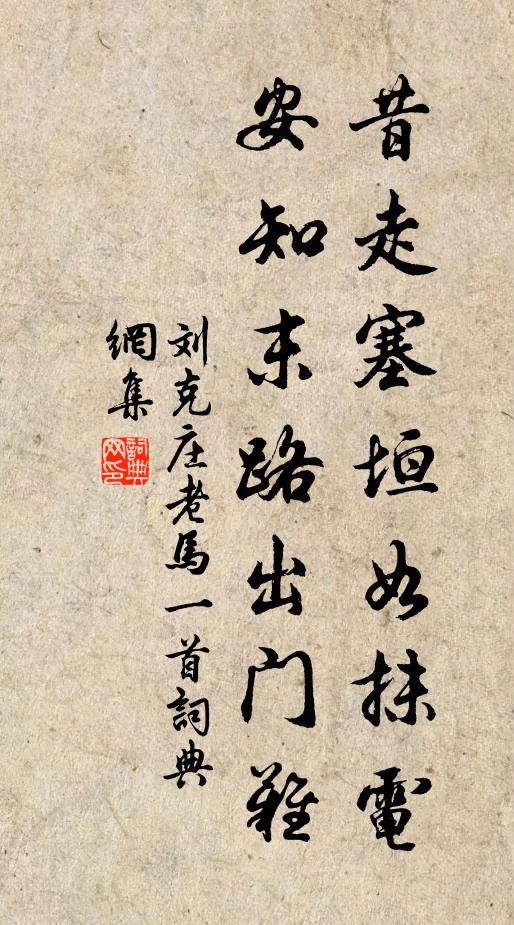 昔走塞垣如抹電
安知末路出门難
刘克庄老馬一首詞典
網集
詞典
网印